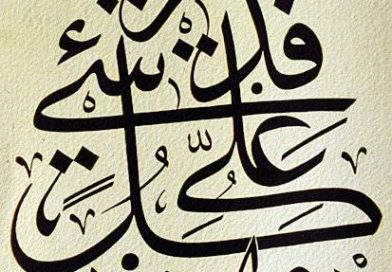 على كل شئ قدير